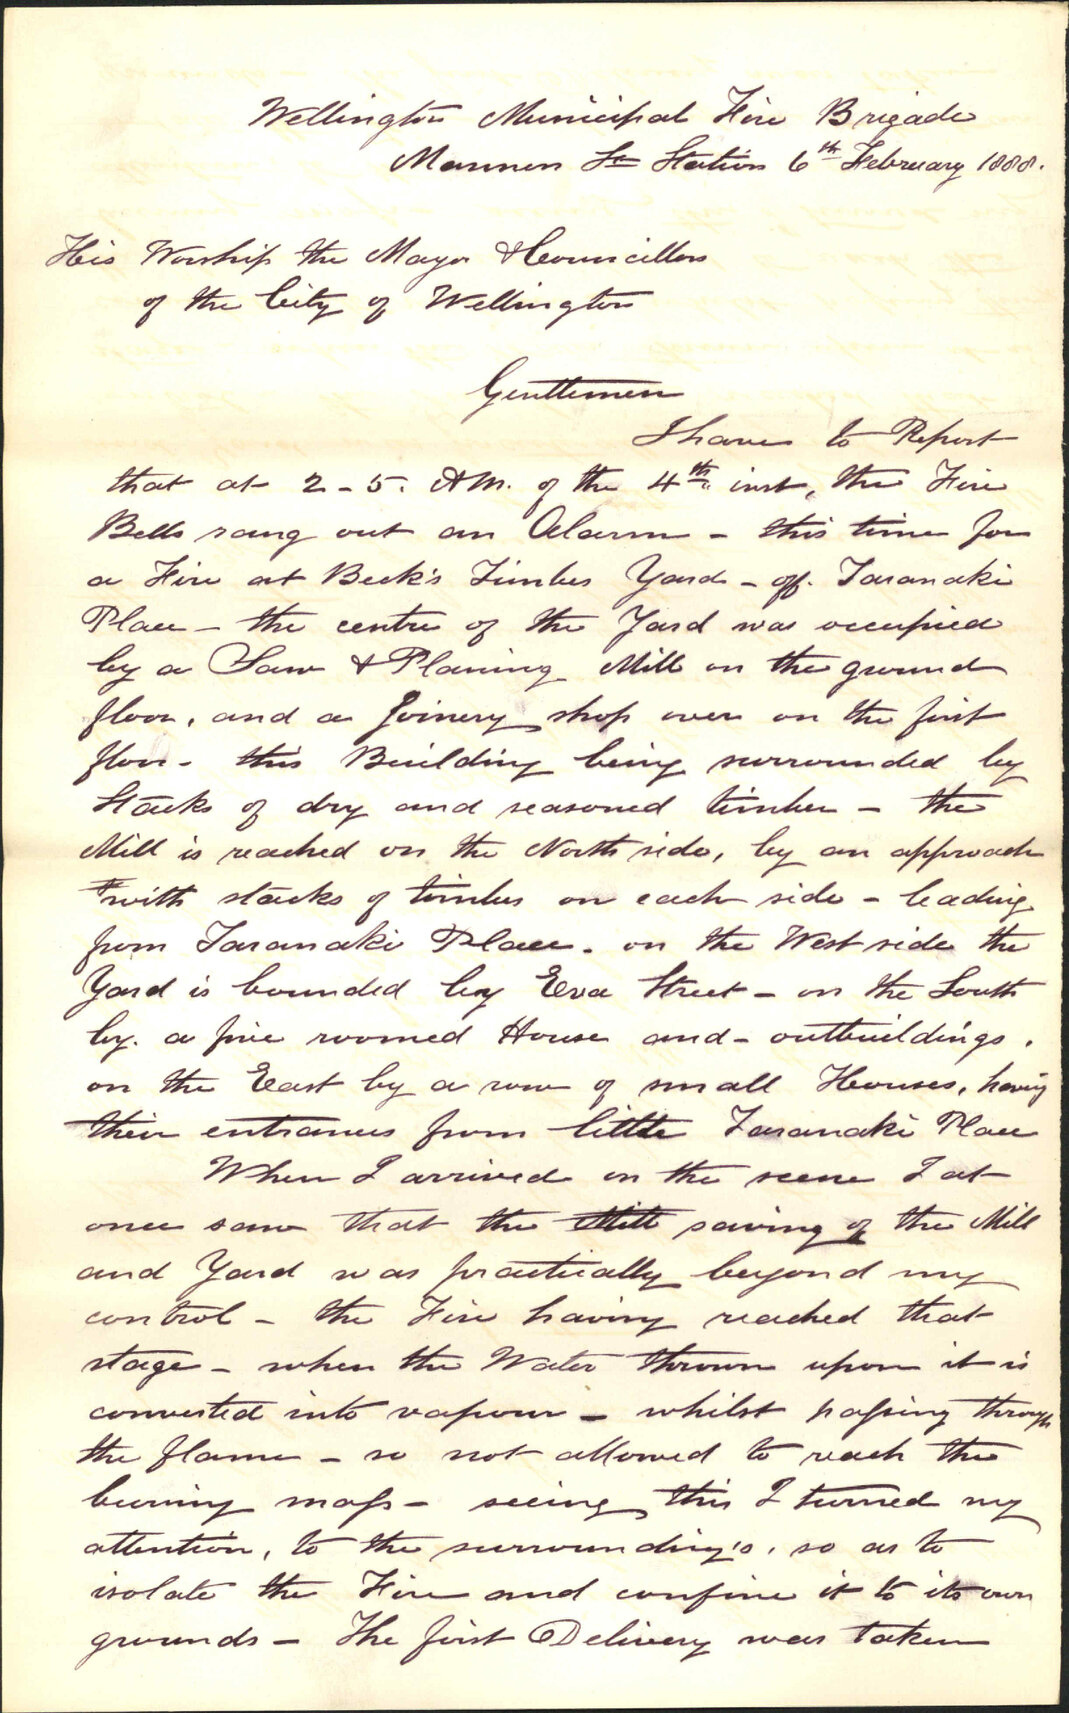 Wellington Municipal Fire Brigade
Manners St Station 6th February 1888.
His Worship the Mayor & Councillors
of the City of Wellington
Gentlemen
I have to Report
that at 2-5. AM. of the 4th inst, the Fire
Bells rang out an Alarm - this time for
a Fire at Beck's Timber Yard - off. Taranaki
Place - the centre of the Yard was occupied
by a Saw & Planing Mill on the ground
floor, and a Joinery shop over on the first
floor - this Building being surrounded by
Stacks of dry and seasoned timber - the
Mill is reached on the North side, by an approach
with stacks of timber on each side - leading
from Taranaki Place - on the West side the
Yard is bounded by Eva Street - on the South
by. a five roomed House and - outbuilding's.
on the East by a row of small Houses, having
their entrances from little Taranaki Place
When I arrived on the scene I at
once saw that the Mill saving of the Mill
and Yard was practically beyond my
control - the Fire having reached that
stage - when the Water thrown upon it is
converted into vapour - whilst passing through
the flame - so not allowed to reach the
burning mass - seeing this I turned my
attention, to the surrounding's, so as to
isolate the Fire and confine it to its own
grounds - The first Delivery was taken